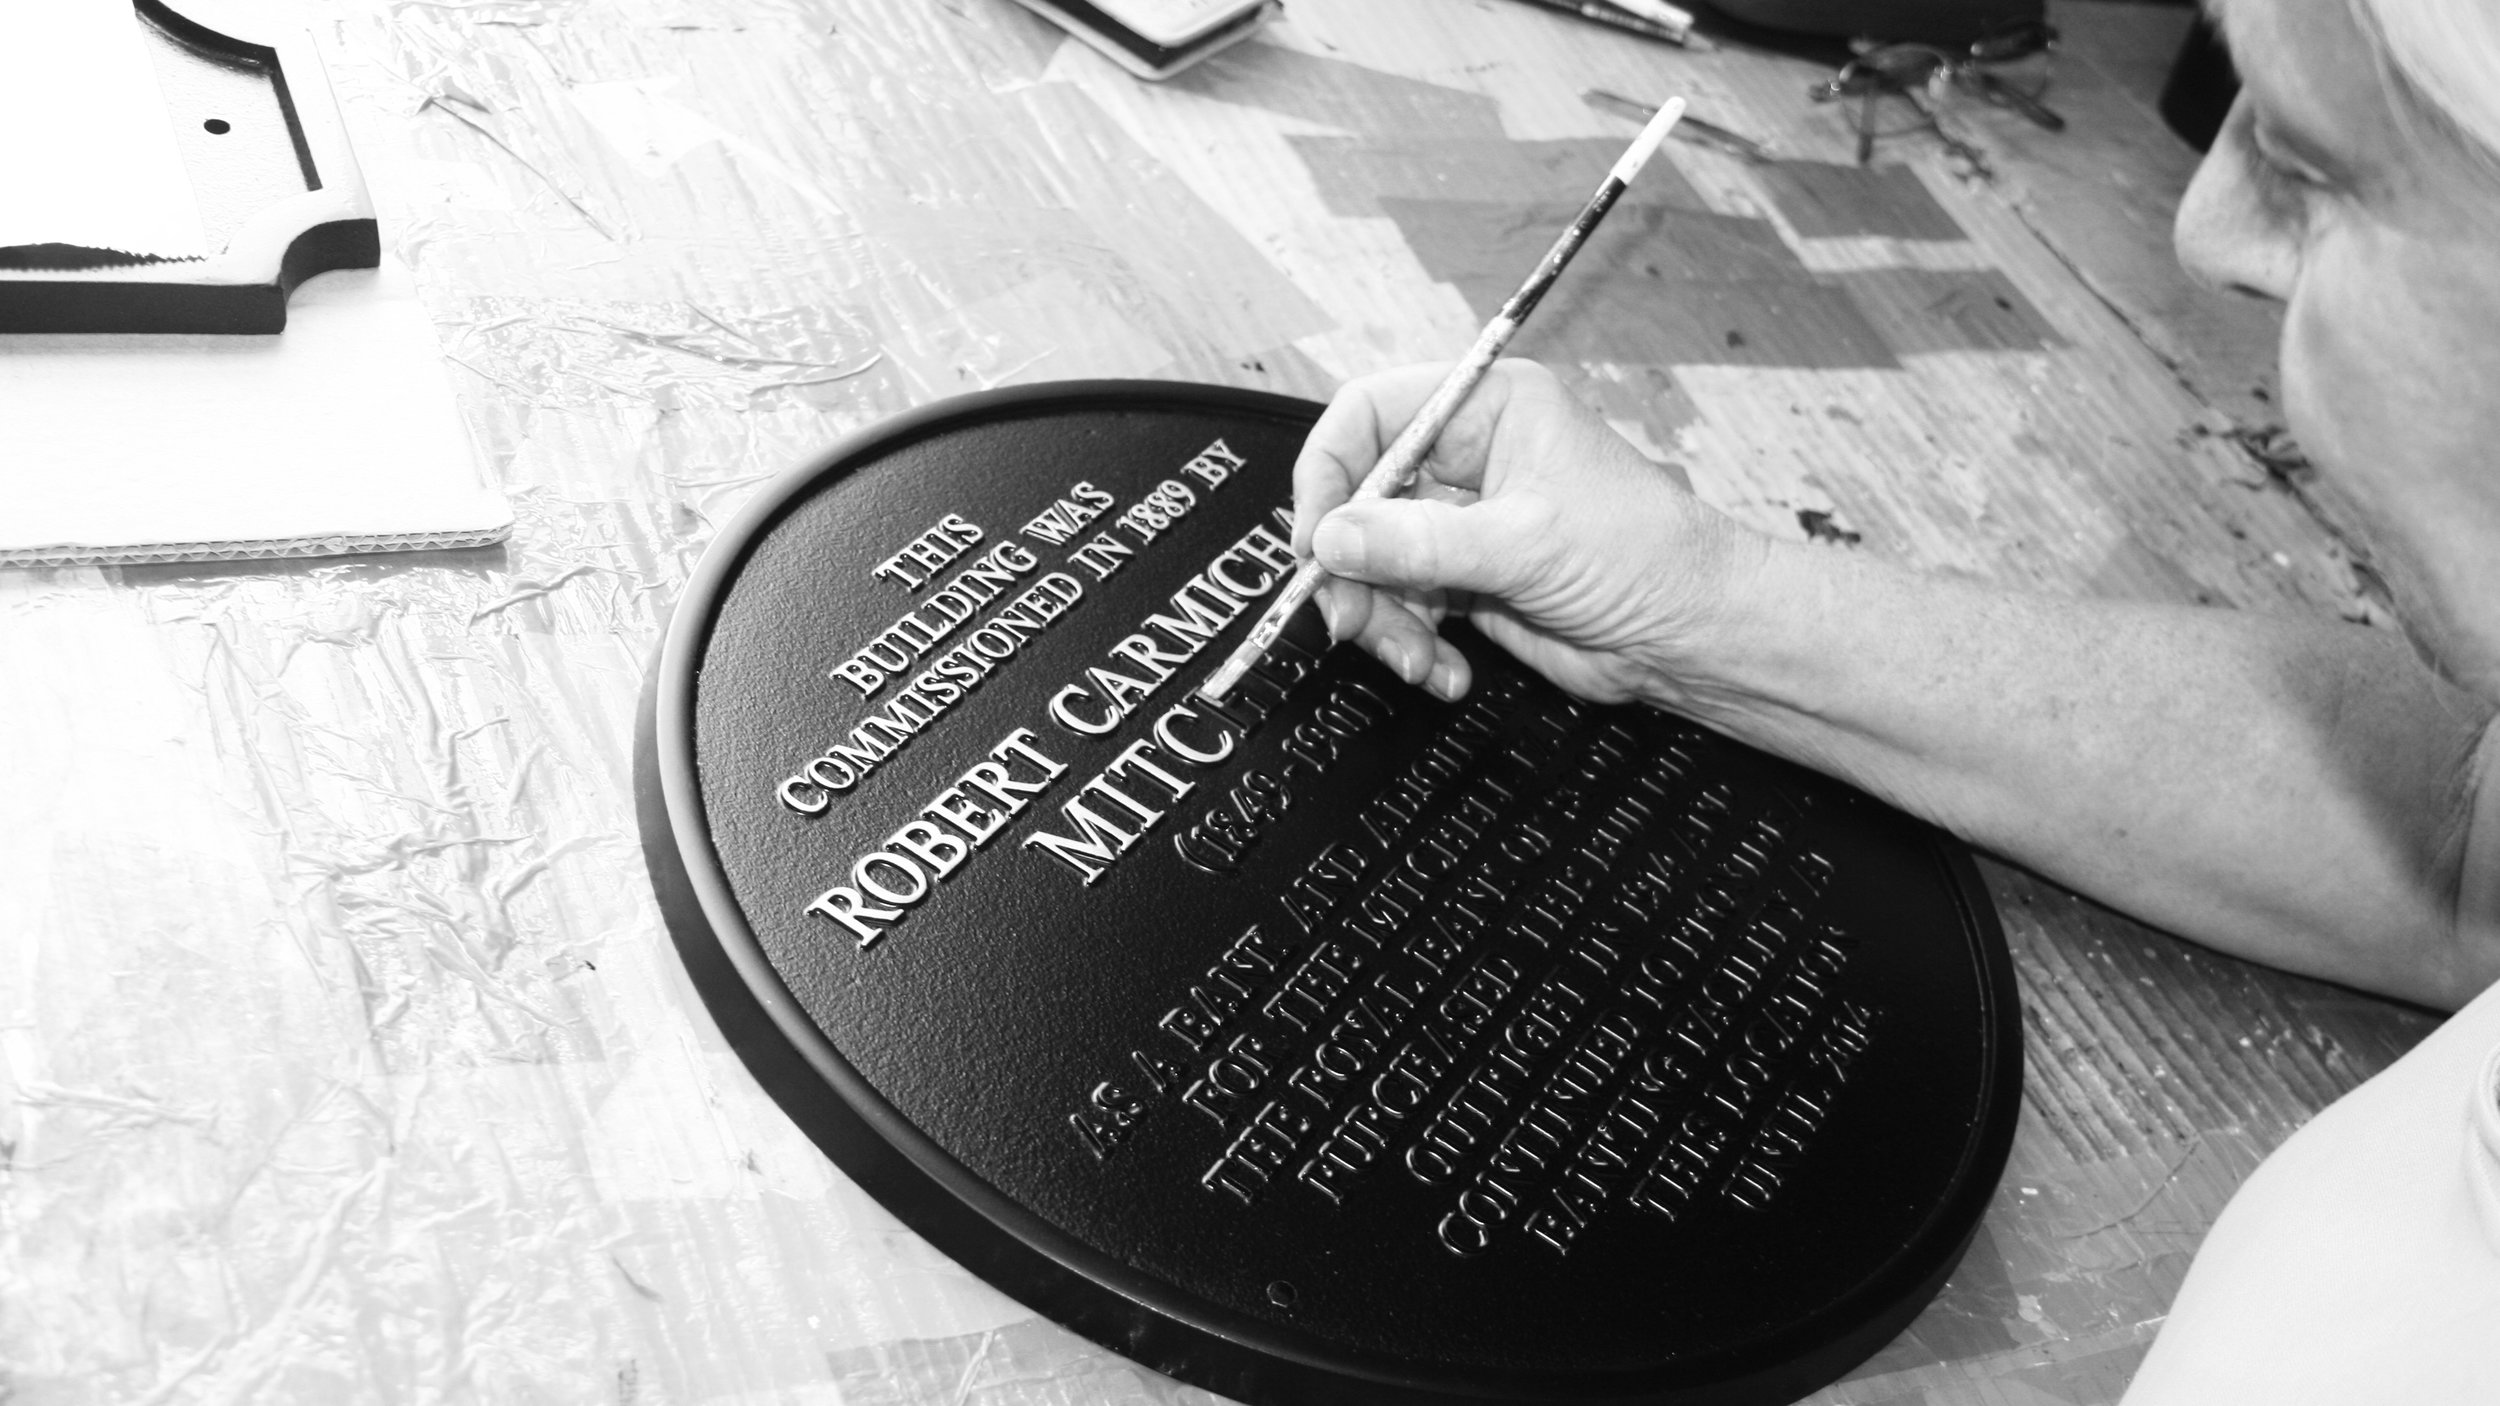 THIS
BUILDING WAS
COMMISSIONED IN 1889 BY
ROBERT CARMICHA
MITCHEL
(1849-1901)
AS A BANK AND ADJOINING
FOR THE MITCHELL
THE ROYAL BANK OF SCOT
PURCHASED THE BUILDING
OUTRIGHT IN 1914 AND
CONTINUED TO PROVIDE A
BANKING FACILITY AT
THIS LOCATION
UNTIL 2014